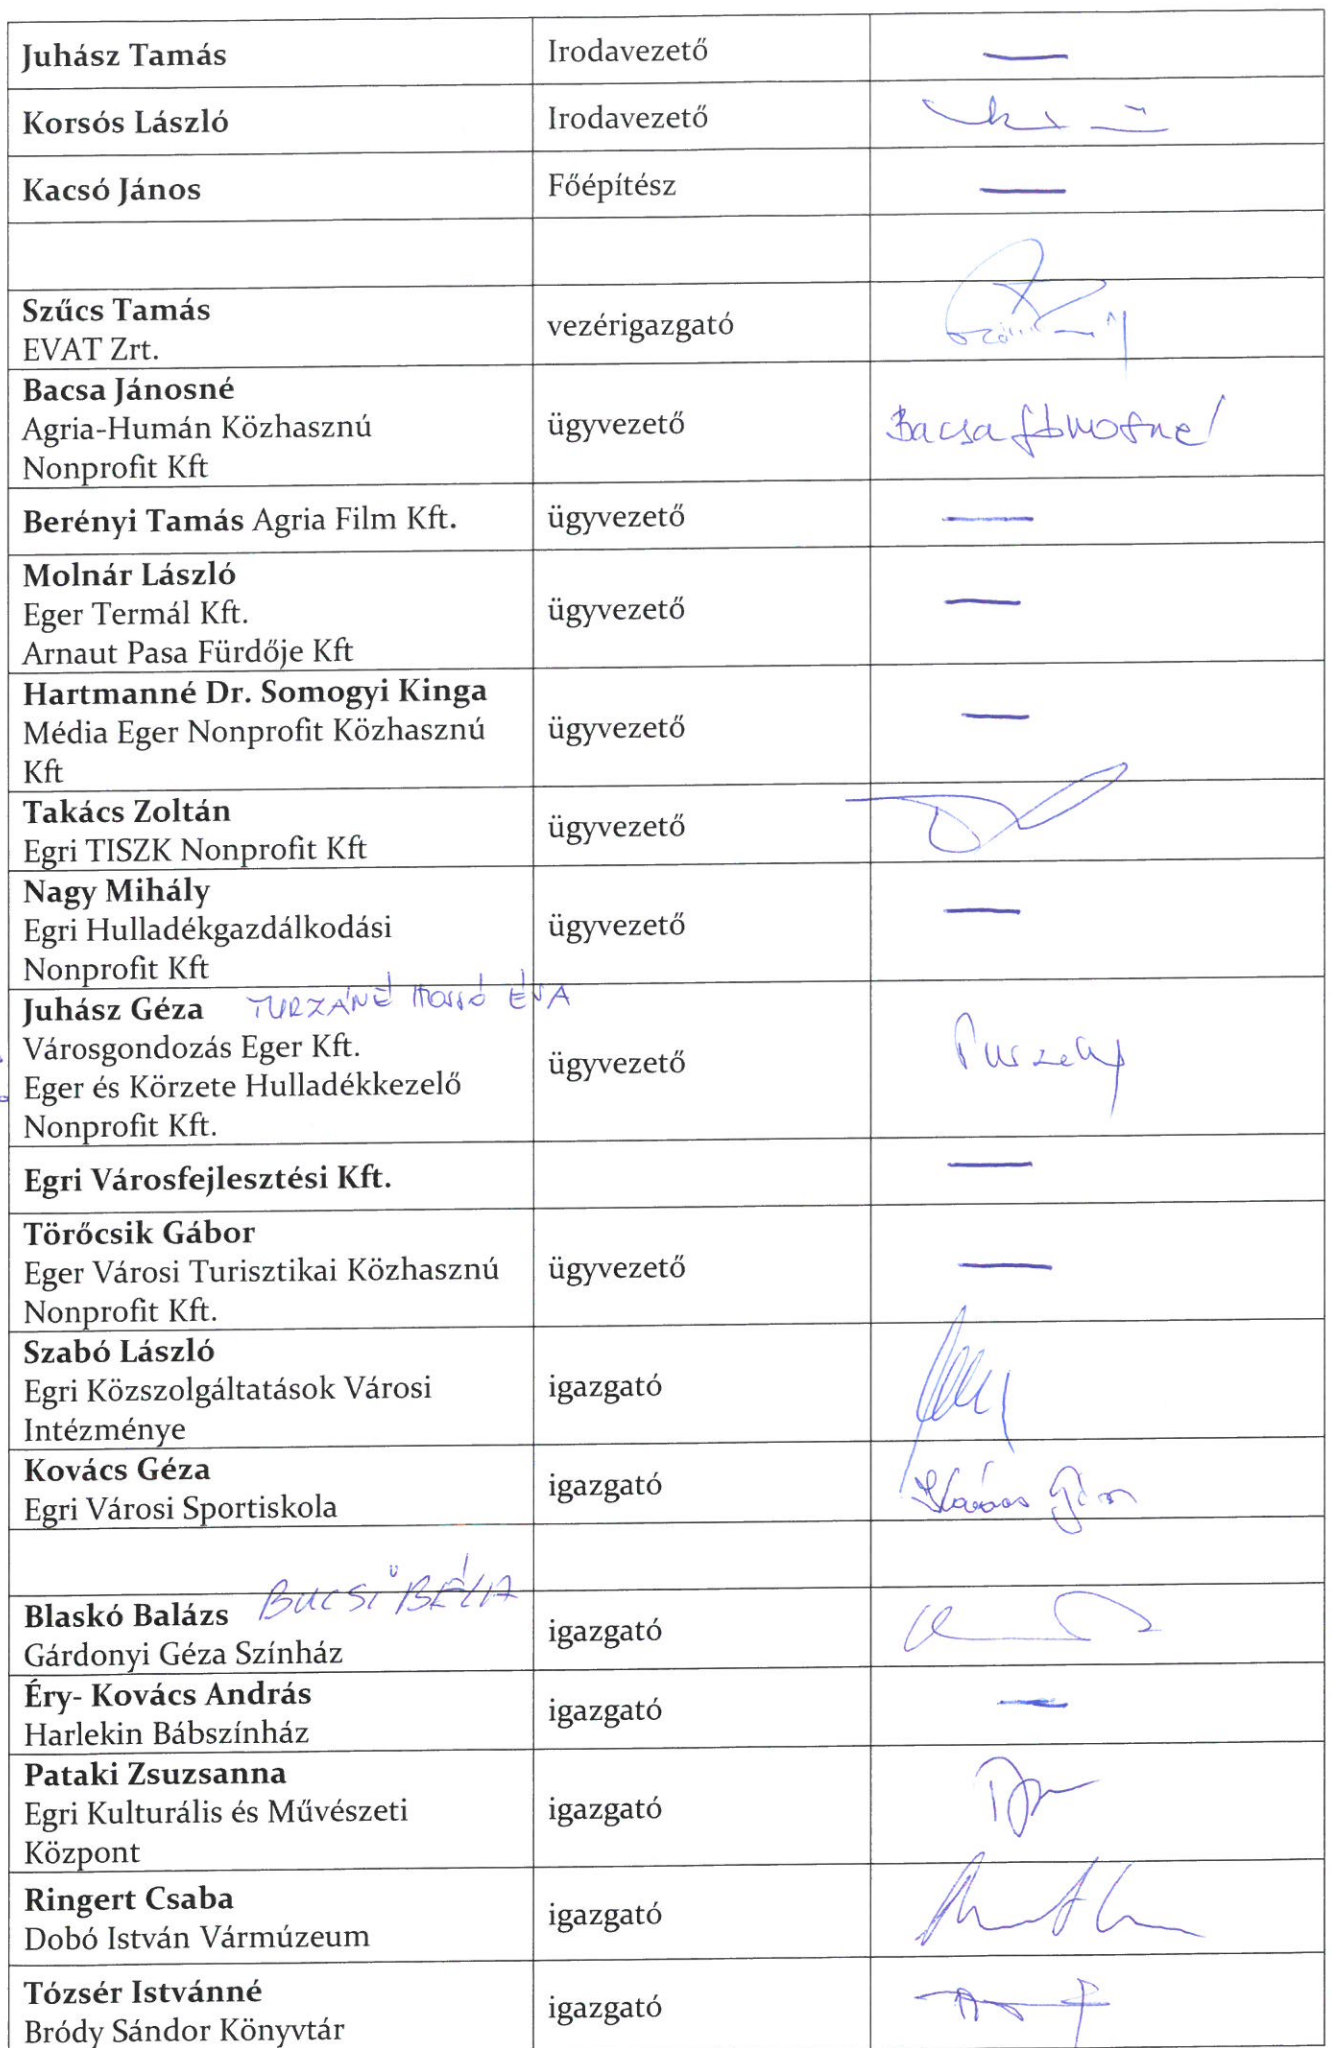 Juhász Tamás Irodavezető
Korsós László Irodavezető
Kacsó János Főépítész
Szűcs Tamás
EVAT Zrt.
vezérigazgató
Bacsa Jánosné
Agria-Humán Közhasznú
Nonprofit Kft
ügyvezető
Bacsa Jánosné
Berényi Tamás Agria Film Kft. ügyvezető
Molnár László
Eger Termál Kft.
Arnaut Pasa Fürdője Kft
ügyvezető
Hartmanné Dr. Somogyi Kinga
Média Eger Nonprofit Közhasznú
Kft
ügyvezető
Takács Zoltán
Egri TISZK Nonprofit Kft
ügyvezető
Nagy Mihály
Egri Hulladékgazdálkodási
Nonprofit Kft
ügyvezető
Juhász Géza TURZÁNÉ ÉVA
Városgondozás Eger Kft.
Eger és Körzete Hulladékkezelő
Nonprofit Kft.
ügyvezető
Egri Városfejlesztési Kft.
Törőcsik Gábor
Eger Városi Turisztikai Közhasznú
Nonprofit Kft.
ügyvezető
Szabó László
Egri Közszolgáltatások Városi
Intézménye
igazgató
Kovács Géza
Egri Városi Sportiskola
igazgató
Kovács Géza
Blaskó Balázs
Gárdonyi Géza Színház
igazgató
Éry- Kovács András
Harlekin Bábszínház
igazgató
Pataki Zsuzsanna
Egri Kulturális és Művészeti
Központ
igazgató
Ringert Csaba
Dobó István Vármúzeum
igazgató
Tózsér Istvánné
Bródy Sándor Könyvtár
igazgató